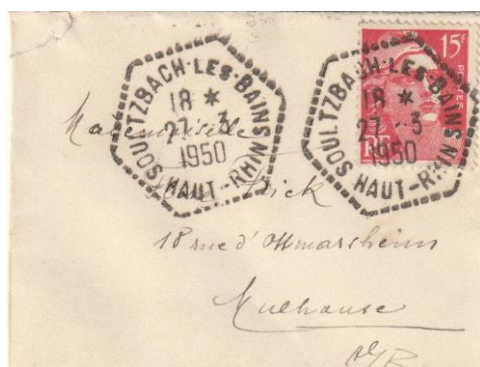 SOULTZBACH-LES-BAINS
18 *
27 - 3
1950
HAUT-RHIN
SOULTZBACH-LES-BAINS
18 *
27 - 3
1950
HAUT-RHIN
15F
POSTES
RF
Mademoiselle
18 rue d'Ottmarsheim
Mulhouse
H/R